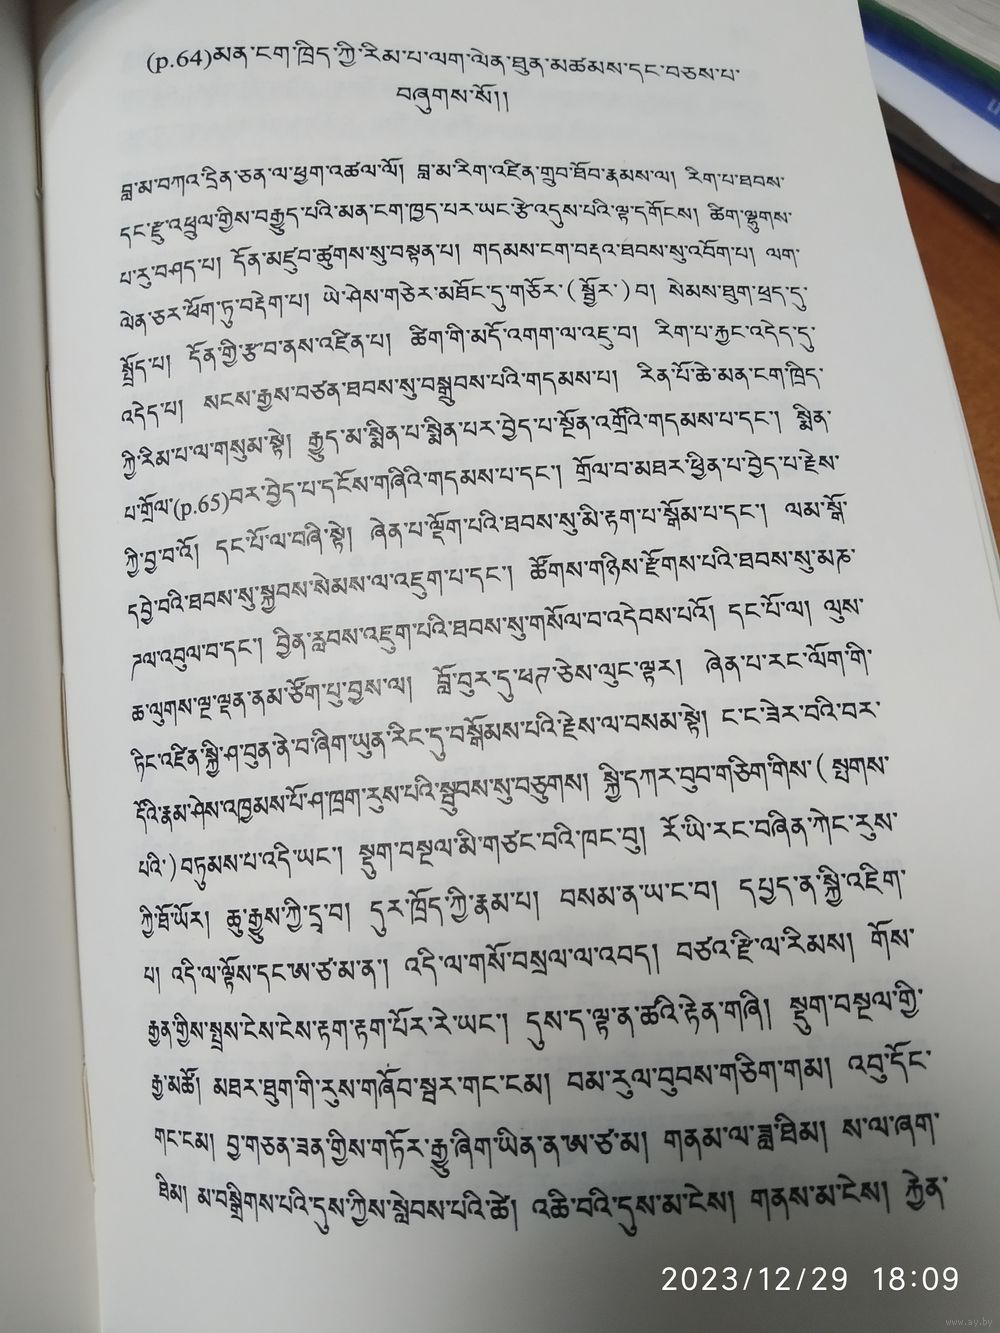 (p.64)མན་ངག་ཁྲིད་ཀྱི་རིམ་པ་ལག་ལེན་ཐུན་མཚམས་དང་བཅས་པ་
བཞུགས་སོ།།
བླ་མ་བཀའ་དྲིན་ཅན་ལ་ཕྱག་འཚལ་ལོ། བླ་མ་རིག་འཛིན་གྲུབ་ཐོབ་རྣམས་ལ། རིག་པ་ཐབས་
དང་རྫུ་འཕྲུལ་གྱིས་བརྒྱུད་པའི་མན་ངག་ཁྱད་པར་ཡང་རྩེ་འདུས་པའི་ལྟ་དགོངས། ཚིག་ལྷུགས་
པ་རུ་བཤད་པ། དོན་མཛུབ་ཚུགས་སུ་བསྟན་པ། གདམས་ངག་བརྡའ་ཐབས་སུ་འབོག་པ། ལག་
ལེན་ཅར་ཕོག་ཏུ་བརྡེག་པ། ཡེ་ཤེས་གཅེར་མཐོང་དུ་གཅོར་(སྦྱོར་)བ། སེམས་ཐུག་ཕྲད་དུ་
སྤྲོད་པ། དོན་གྱི་རྩ་བ་ནས་འཛིན་པ། ཚིག་གི་མདོ་འགག་ལ་འཇུ་བ། རིག་པ་རྐྱང་འདེད་དུ་
འདེད་པ། སངས་རྒྱས་བཙན་ཐབས་སུ་བསྒྲུབས་པའི་གདམས་པ། རིན་པོ་ཆེ་མན་ངག་ཁྲིད་
ཀྱི་རིམ་པ་ལ་གསུམ་སྟེ། རྒྱུད་མ་སྨིན་པ་སྨིན་པར་བྱེད་པ་སྔོན་འགྲོའི་གདམས་པ་དང༌། སྨིན་
པ་གྲོལ་(p.65)བར་བྱེད་པ་དངོས་གཞིའི་གདམས་པ་དང༌། གྲོལ་བ་མཐར་ཕྱིན་པ་བྱེད་པ་རྗེས་
ཀྱི་བྱ་བའོ། དང་པོ་ལ་བཞི་སྟེ། ཞེན་པ་ལྡོག་པའི་ཐབས་སུ་མི་རྟག་པ་སྒོམ་པ་དང༌། ལམ་སྒོ་
དབྱེ་བའི་ཐབས་སུ་སྐྱབས་སེམས་ལ་འཇུག་པ་དང༌། ཚོགས་གཉིས་རྫོགས་པའི་ཐབས་སུ་མཎ་
ཌལ་འབུལ་བ་དང༌། བྱིན་རླབས་འཇུག་པའི་ཐབས་སུ་གསོལ་བ་འདེབས་པའོ། དང་པོ་ལ། ལུས་
ཆ་ལུགས་ལྔ་ལྡན་ནམ་ཙོག་པུ་བྱས་ལ། བློ་བུར་དུ་ཕཊ་ཅེས་ལུང་ལྟར། ཞེན་པ་རང་ལོག་གི་
ཏིང་འཛིན་སྐྱི་ཤ་བུན་ནེ་བ་ཞིག་ཡུན་རིང་དུ་བསྒོམས་པའི་རྗེས་ལ་བསམ་སྟེ། ང་ང་ཟེར་བའི་བར་
དོའི་རྣམ་ཤེས་འཁྱམས་པོ་ཤ་ཁྲག་རུས་པའི་སྦུབས་སུ་བཅུགས། སྐྱི་དཀར་བུབ་གཅིག་གིས་(སྤགས་
པའི་)བཏུམས་པ་འདི་ཡང༌། སྡུག་བསྔལ་མི་གཙང་བའི་ཁང་བུ། རོ་ཡི་རང་བཞིན་ཀེང་རུས་
ཀྱི་ཐོ་ཡོར། ཆུ་རྒྱུས་ཀྱི་དྲྭ་བ། དུར་ཁྲོད་ཀྱི་རྣམ་པ། བསམ་ན་ཡ་ང་བ། དཔྱད་ན་སྐྱི་འཇིག་
པ། འདི་ལ་ལྟོས་དང་ཨ་ཙ་མ་ན༌། འདི་ལ་གསོ་བསྲལ་ལ་འབད། བཙའ་རྫི་ལ་རིམས། གོས་
རྒྱན་གྱིས་སྤྲས་ངེས་ངེས་རྟག་རྟག་པོར་རེ་ཡང༌། དུས་ད་ལྟ་ན་ཚའི་རྟེན་གཞི། སྡུག་བསྔལ་གྱི་
རྒྱ་མཚོ། མཐར་ཐུག་གི་རུས་གཞོབ་སྦར་གང་ངམ། བམ་རུལ་བུབས་གཅིག་གམ། འབུ་དོང་
གང་ངམ། བྱ་གཅན་ཟན་གྱིས་གཏོར་རྒྱུ་ཞིག་ཡིན་ན་ཨ་ཙ་མ། གནམ་ལ་ཟླ་ཐིམ། ས་ལ་ཞག་
ཐིམ། མ་བསྒྲིགས་པའི་དུས་ཀྱིས་སླེབས་པའི་ཚེ། འཆི་བའི་དུས་མ་ངེས། གནས་མ་ངེས། རྐྱེན་
2023/12/29 18:09
www.ay.by